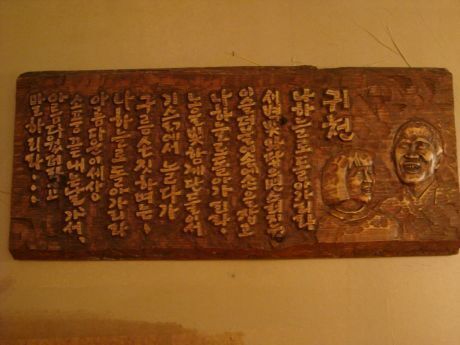 귀천
나 하늘로 돌아가리라
새벽빛 와 닿으면 스러지는
이슬 더불어 손에 손을 잡고
나 하늘로 돌아가리라
노을빛 함께 단 둘이서
기슭에서 놀다가
구름 손짓하면은
나 하늘로 돌아가리라
아름다운 이 세상
소풍 끝내는 날 가서,
아름다웠더라고
말하리라...